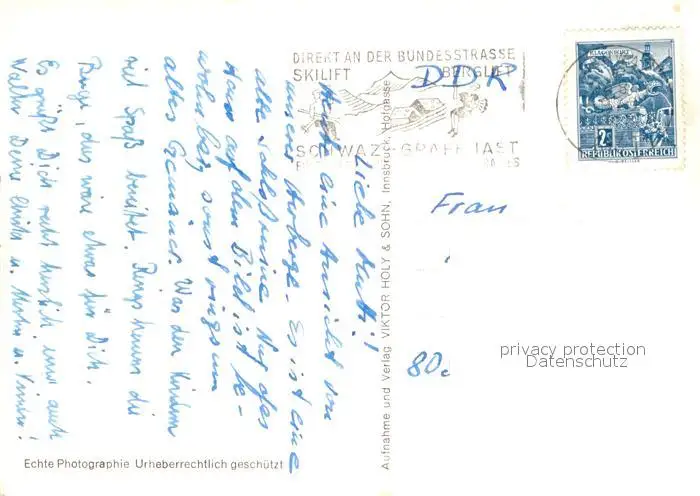 DIREKT AN DER BUNDESSTRASSE
SKILIFT BERGLIFT
SCHWAZ-GRAFENAST
DDR
KLAGENFURT
2S
REPUBLIK ÖSTERREICH
Liebe Mutti!
Heute eine Ansicht von
unserer Herberge. Es ist eine
alte Schloßruine. Nur das
Haus auf dem Bild ist be-
wohnbar, sonst ringsum
altes Gemäuer. Was den Kindern
viel Spaß bereitet. Rings herum die
Berge, das wäre etwas für Dich.
Es grüßt Dich recht herzlich, und auch
Walter Deine u. u.
Frau
80.
Aufnahme und Verlag VIKTOR HOLY & SOHN, Innsbruck, Hofgasse
Echte Photographie Urheberrechtlich geschützt
privacy protection
Datenschutz